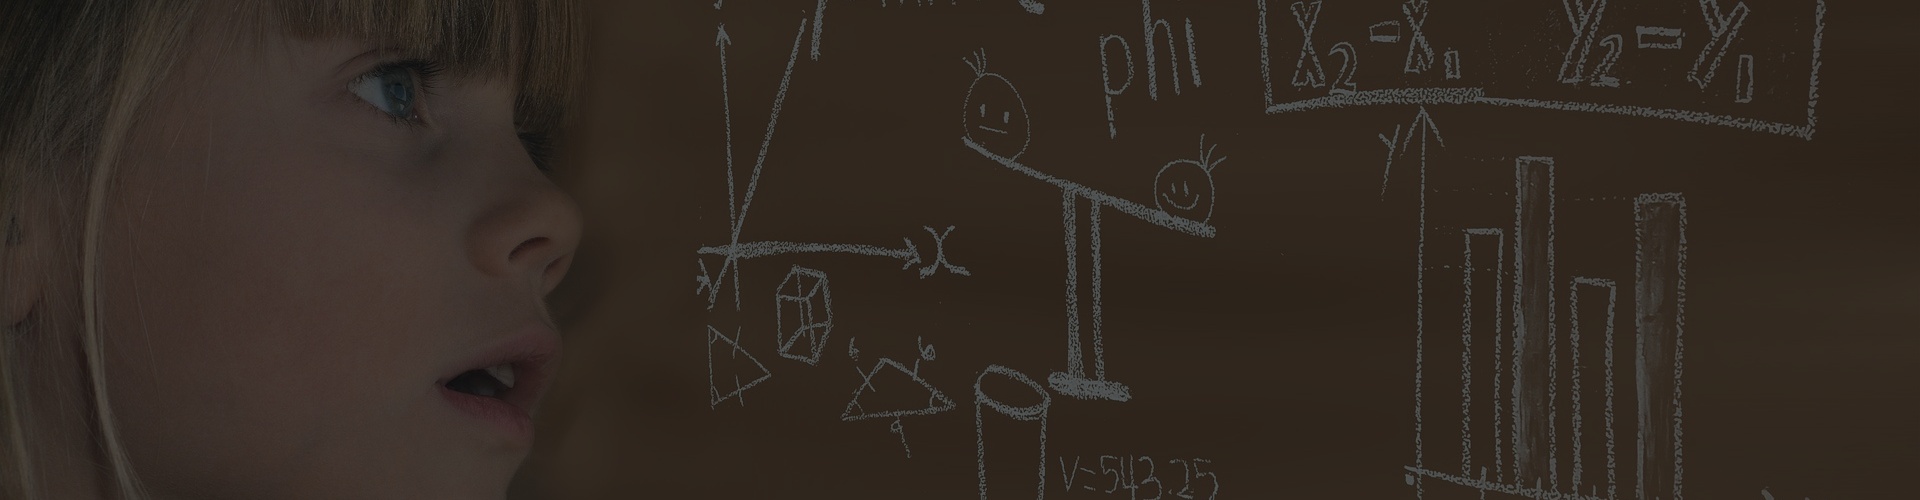 phi
X₂-X₁ Y₂-Y₁
y
x
b b
a
V=543.25